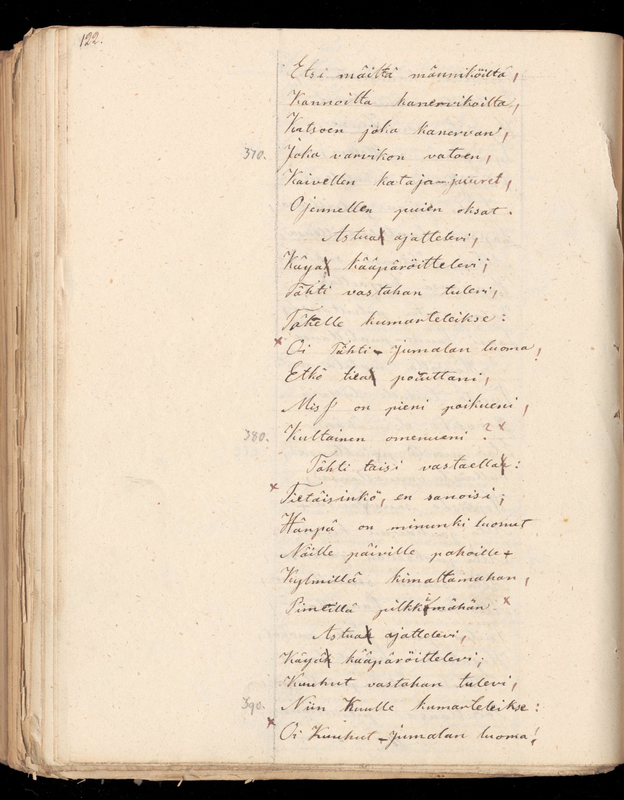 122.
Etsi mäiltä männiköiltä,
Kannoilta kanervikoilta,
Katsoen joka kanervan,
370. Joka varvikon vatoen,
Kaivellen kataja-juuret,
Ojennellen puien oksat.
Astua ajattelevi,
Käyä kääpäröittelevi;
Tähti vastahan tulevi,
Tähelle kumarteleikse:
x Oi Tähti - Jumalan luoma,
Etkö tieä poiuttani,
Miss' on pieni poikueni,
380. Kultainen omenueni? x
Tähti taisi vastaella:
x Tietäisinkö, en sanoisi;
Hänpä on minunki luonut
Näille päiville pahoille
Kylmillä kimaltamahan,
Pimeillä pilkkimähän. x
Astua ajattelevi,
Käyä kääpäröittelevi;
Kuuhut vastahan tulevi,
390. Niin Kuulle kumarteleikse:
x Oi Kuuhut - Jumalan luoma!